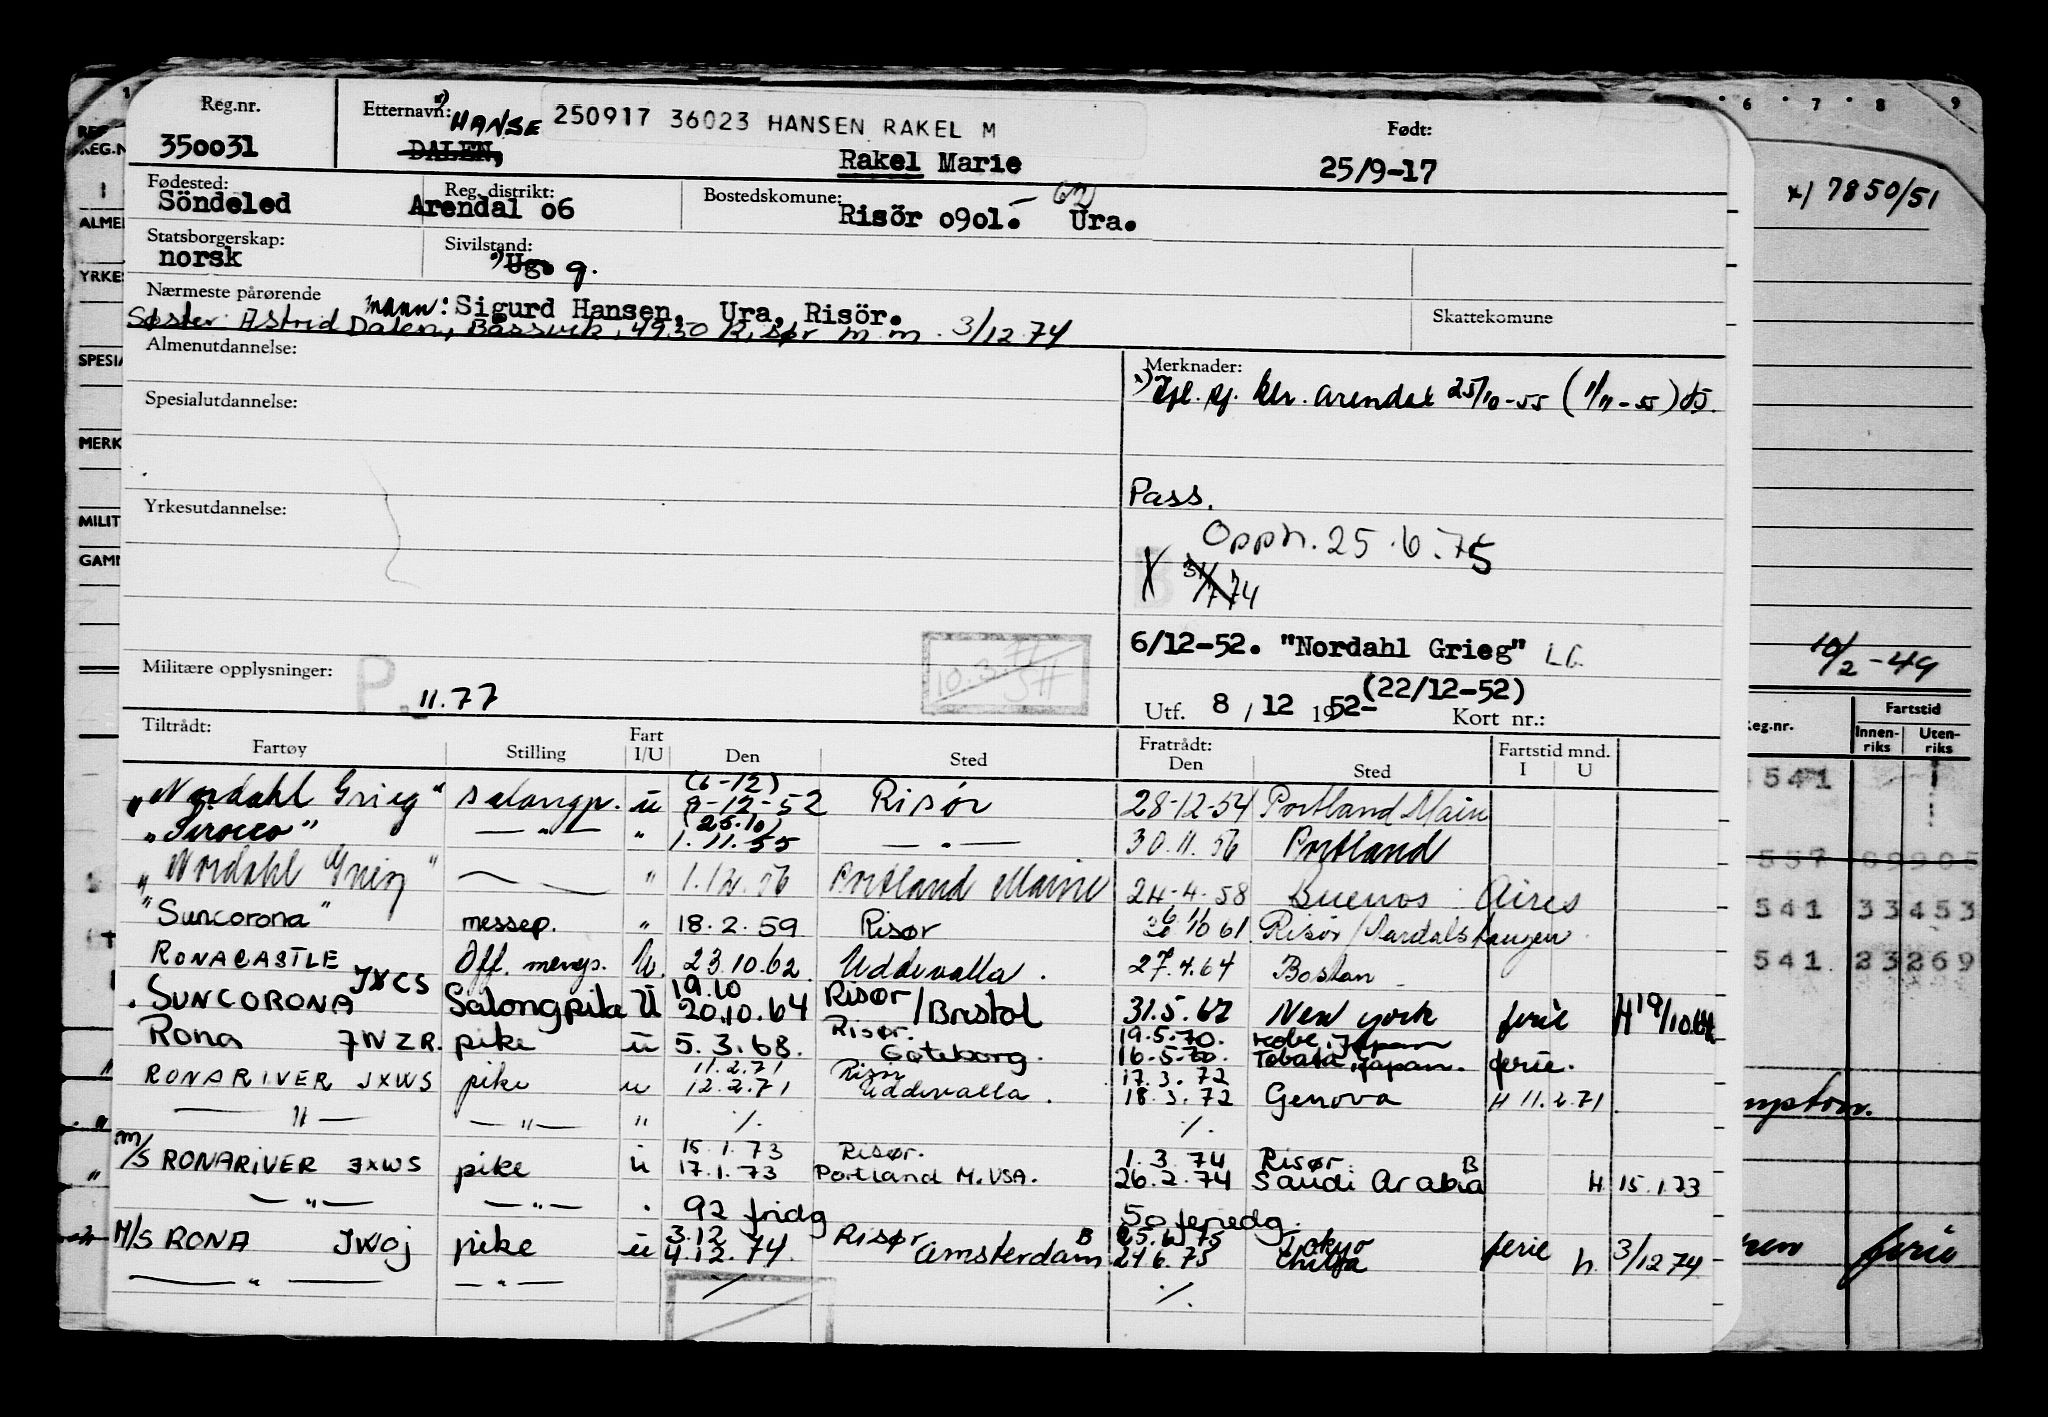 Reg.nr.
350031
Etternavn: x) HANSE
250917 36023 HANSEN RAKEL M
DALEN,
Rakel Marie
Født:
25/9-17
Fødested:
Söndeled
Reg. distrikt:
Arendal o6
Bostedskomune:
Risör o9o1.- Ura.
x) 7850/51
Statsborgerskap:
norsk
Sivilstand:
x) Ug. g.
Nærmeste pårørende
mann: Sigurd Hansen, Ura, Risör.
Søster: Astrid Dalen, Båssvik, 4950 Risør m.m. 3/12.74
Skattekomune
Almenutdannelse:
Merknader:
arendal 25/10-55 (1/11-55)
Spesialutdannelse:
Pass.
Yrkesutdannelse:
Opph. 25.6.75
X 31/7 74
6/12-52. "Nordahl Grieg" LG
10/2-49
Militære opplysninger:
P. 11.77
(22/12-52)
Utf. 8 / 12 1952- Kort nr.:
Tiltrådt:
Fartøy Stilling Fart I/U Den Sted
Fratrådt:
Den Sted Fartstid mnd. I U
eg.nr. Fartstid Innen-riks Uten-riks
(6-12)
"Nordahl Grieg" salongp. u 9-12-52 Risør 28-12-54 Portland Main
(25.10)
"Sirocco" — " — " 1.11.55 — " — 30.11.56 Portland
"Nordahl Grieg" — " 1.12.56 Portland Maine 24-4-58 Buenos Aires
"Suncorona" messep. " 18.2.59 Risør 61 Risør/
RONACASTLE Off. messp. U. 23.10.62 Uddevalla. 27.4.64 Boston
19.10
SUNCORONA JXCS Salongpike U 20.10.64 Risør/Bristol 31.5.67 New york ferie H 19/10.64
Risør. 19.5.70. Kobe, Japan
Rona JWZR. pike u 5.3.68. Göteborg. 16.5.70. Tobata, Japan. ferie.
11.2.71 Risør 17.3.72
RONARIVER JXWS pike u 12.2.71 Uddevalla. 18.3.72 Genova H 11.2.71.
— " — — " — " %. %.
15.1.73 Risør. 1.3.74 Risør.
M/S RONARIVER JXWS pike u 17.1.73 Portland M. USA. 26.2.74 Saudi Arabia B H 15.1.73
— " — — " — " 92 fridg 50 feriedg.
3.12 Risør 25.6.75 Tokyo
M/S RONA JWOJ pike u 4.12.74. Amsterdam B 24.6.75 Chiba ferie h. 3/12 74
— " — — " — % %.
541
557
541 33453
541. 23269
ferie